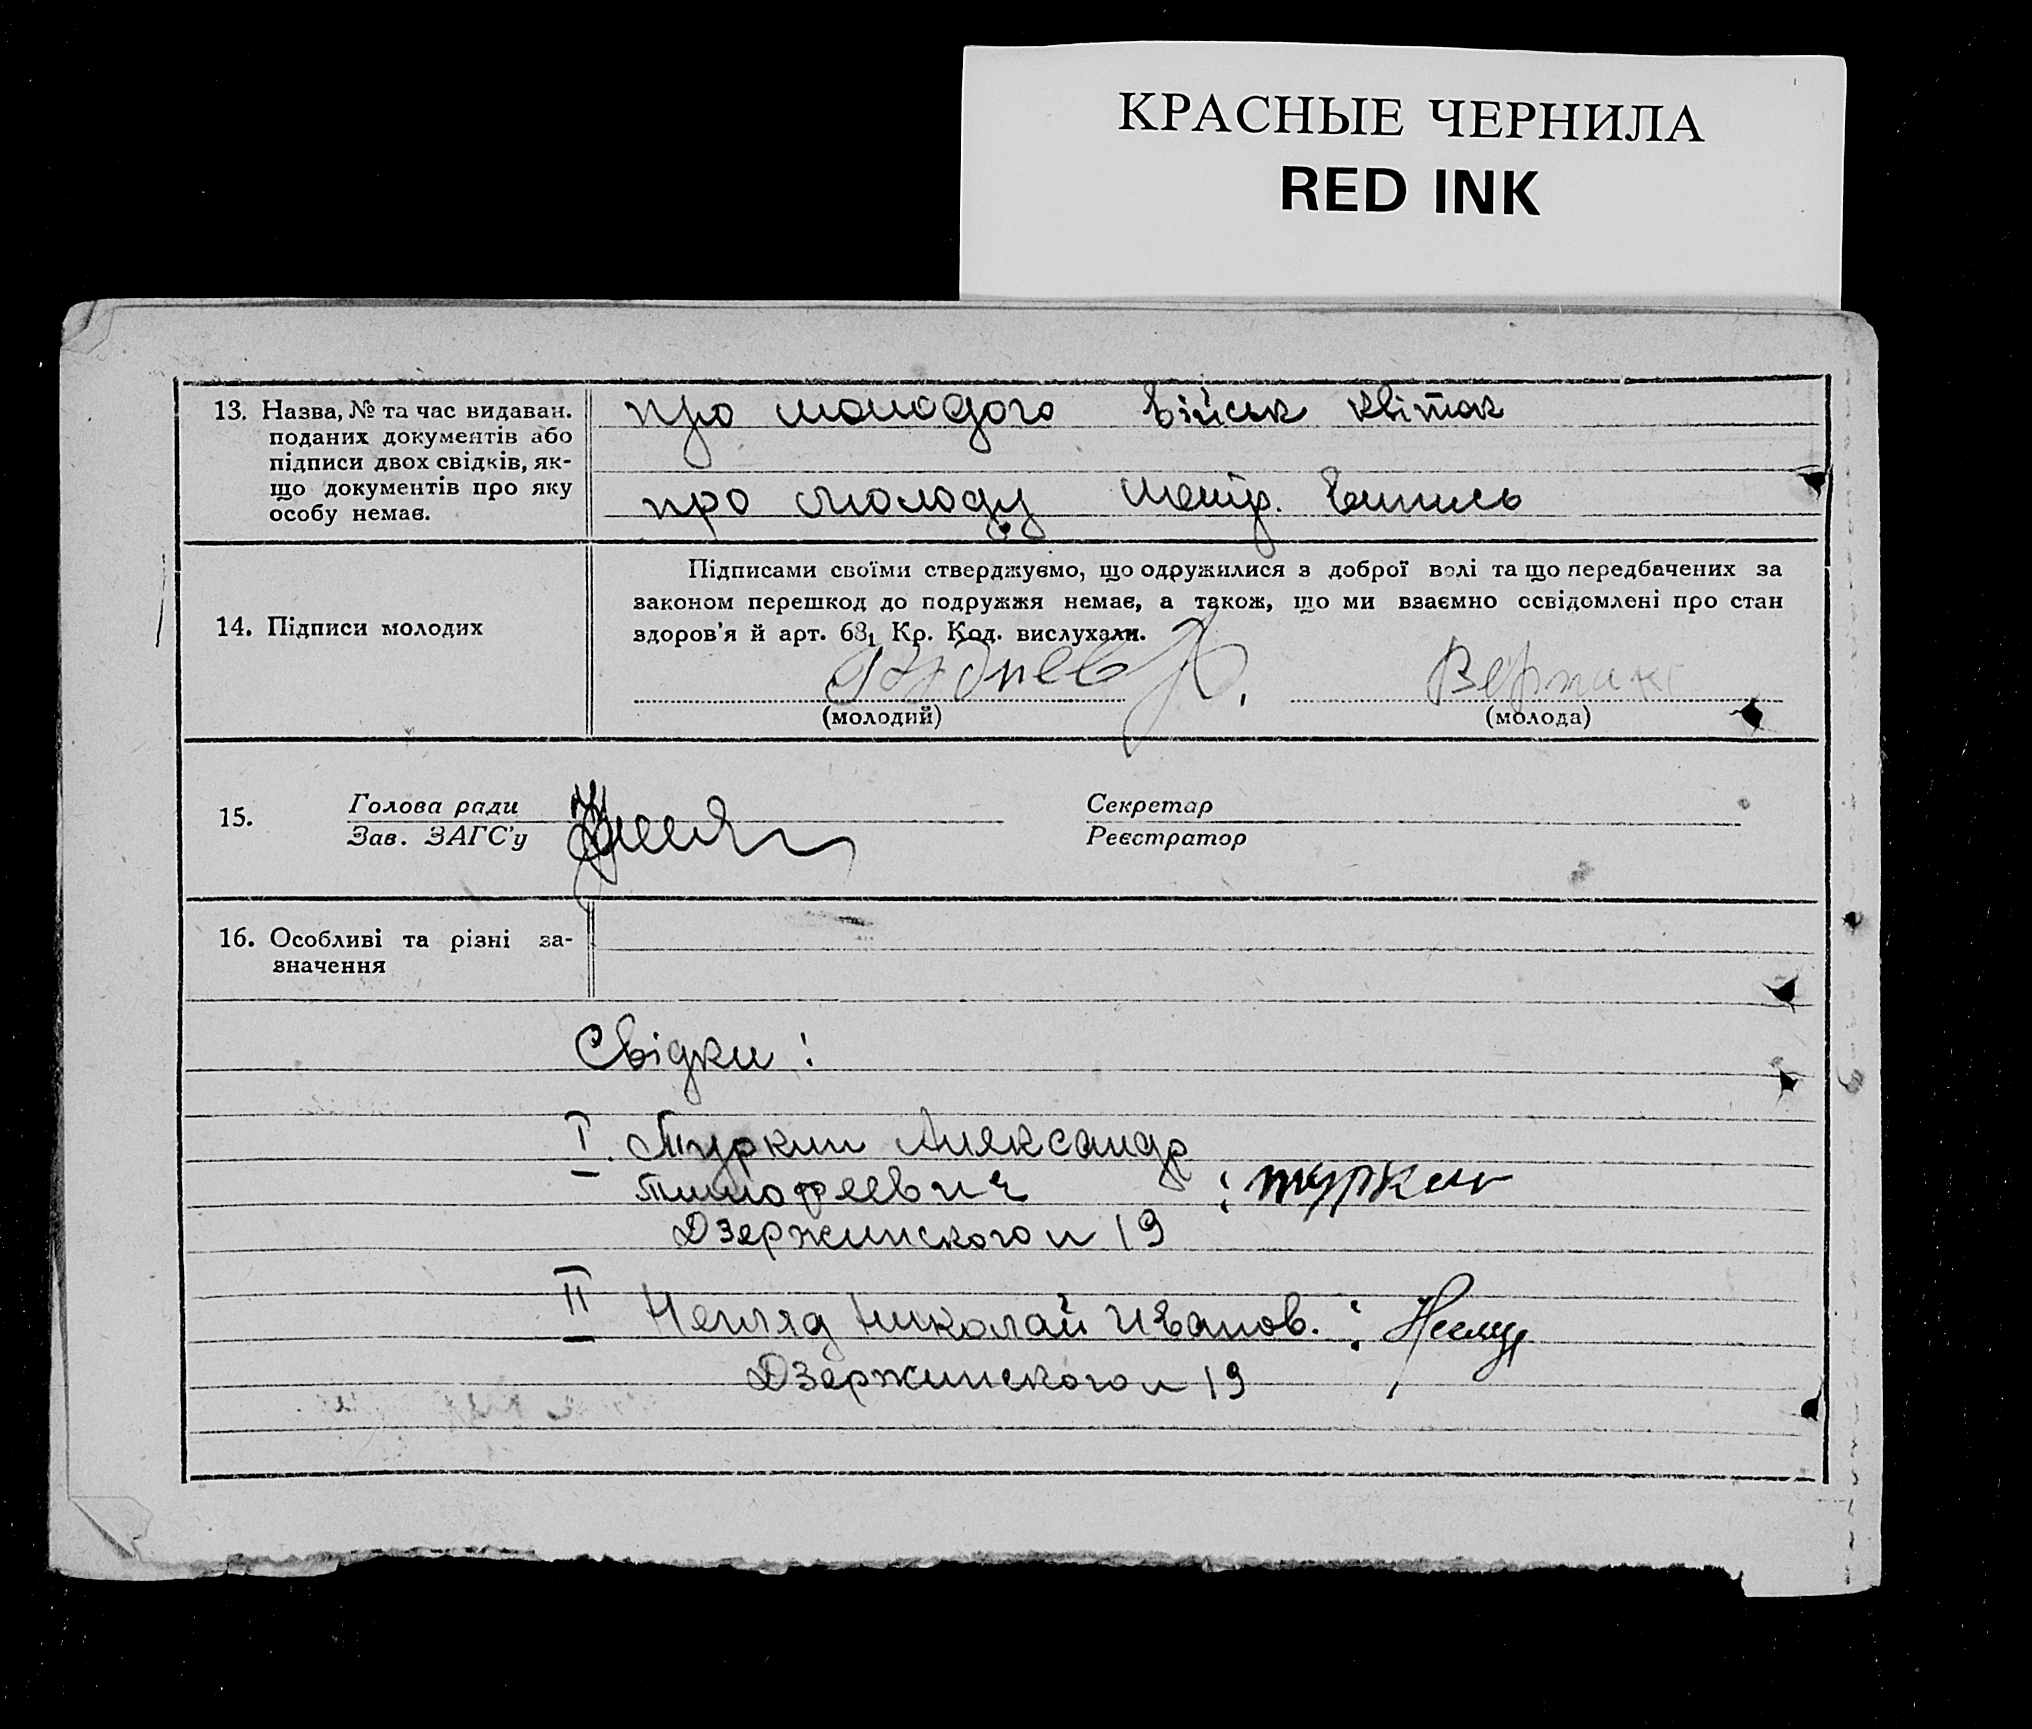 КРАСНЫЕ ЧЕРНИЛА
RED INK
13. Назва, № та час видаван.
поданих документів або
підписи двох свідків, як-
що документів про яку
особу немає.
про молодого Військ квіток
про молоду метр. Випись
14. Підписи молодих
Підписами своїми стверджуємо, що одружилися з доброї волі та що передбачених за
законом перешкод до подружжя немає, а також, що ми взаємно освідомлені про стан
здоров'я й арт. 68₁ Кр. Код. вислухали.
(молодий) (молода)
15. Голова ради Секретар
Зав. ЗАГС'у Реєстратор
16. Особливі та різні за-
значення
Свідки:
I. Туркин Александр
Тимофеевич : туркин
Дзержинского 19
II Негляд Николай Иванов. :
Дзержинского 19